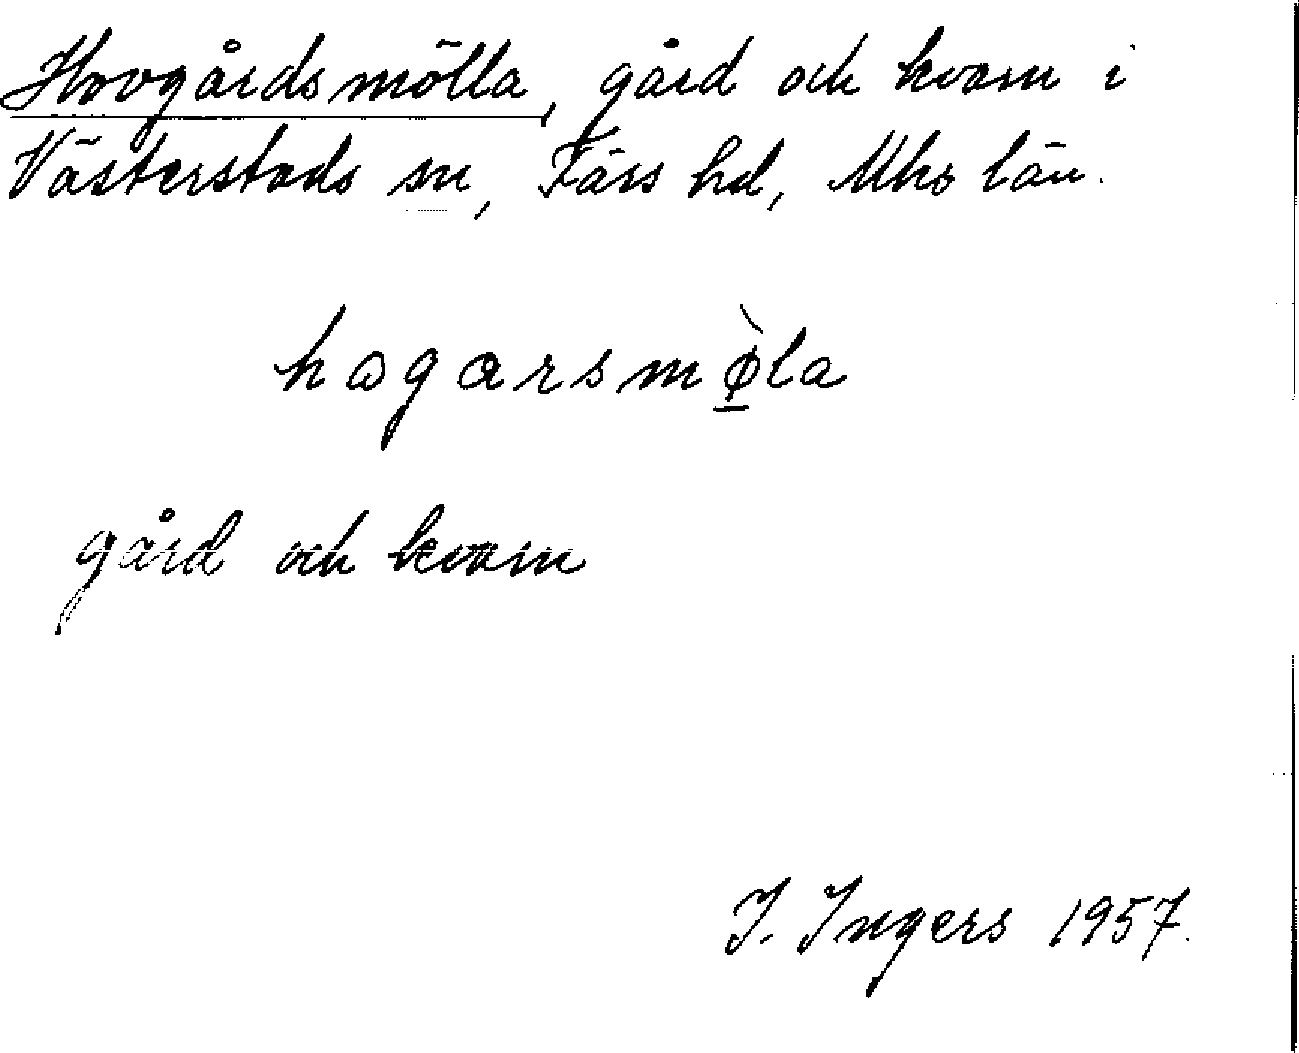 Hovgårdsmölla, gård och kvarn i
Västerstads sn, Färs hd, Mhs län.
hagarsmø̱̀la
gård och kvarn
I. Ingers 1957.